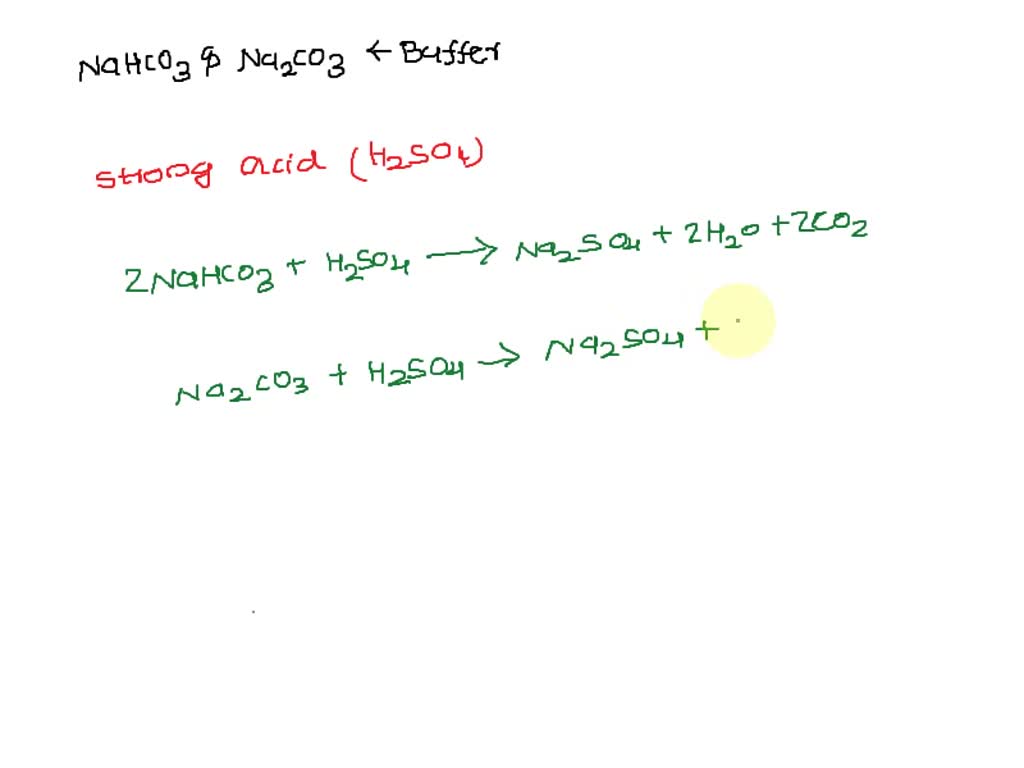 NaHCO3 & Na2CO3 ← Buffer
strong acid (H2SO4)
2NaHCO3 + H2SO4 → Na2SO4 + 2H2O + 2CO2
Na2CO3 + H2SO4 → Na2SO4 +